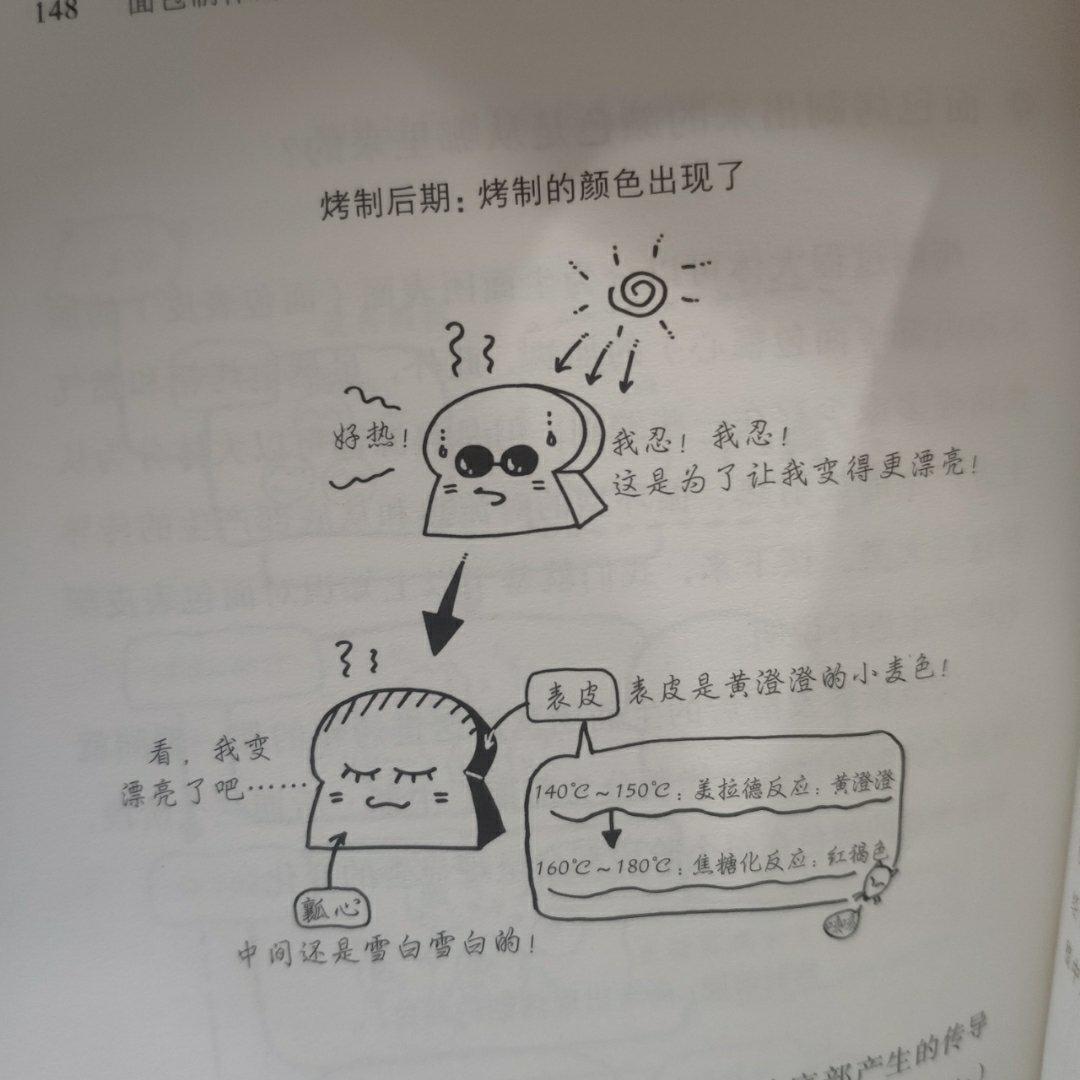 148
烤制后期：烤制的颜色出现了
好热！
我忍！我忍！
这是为了让我变得更漂亮！
表皮
表皮是黄澄澄的小麦色！
看，我变
漂亮了吧……
140℃～150℃：美拉德反应：黄澄澄
160℃～180℃：焦糖化反应：红褐色
瓤心
中间还是雪白雪白的！
部产生的传导